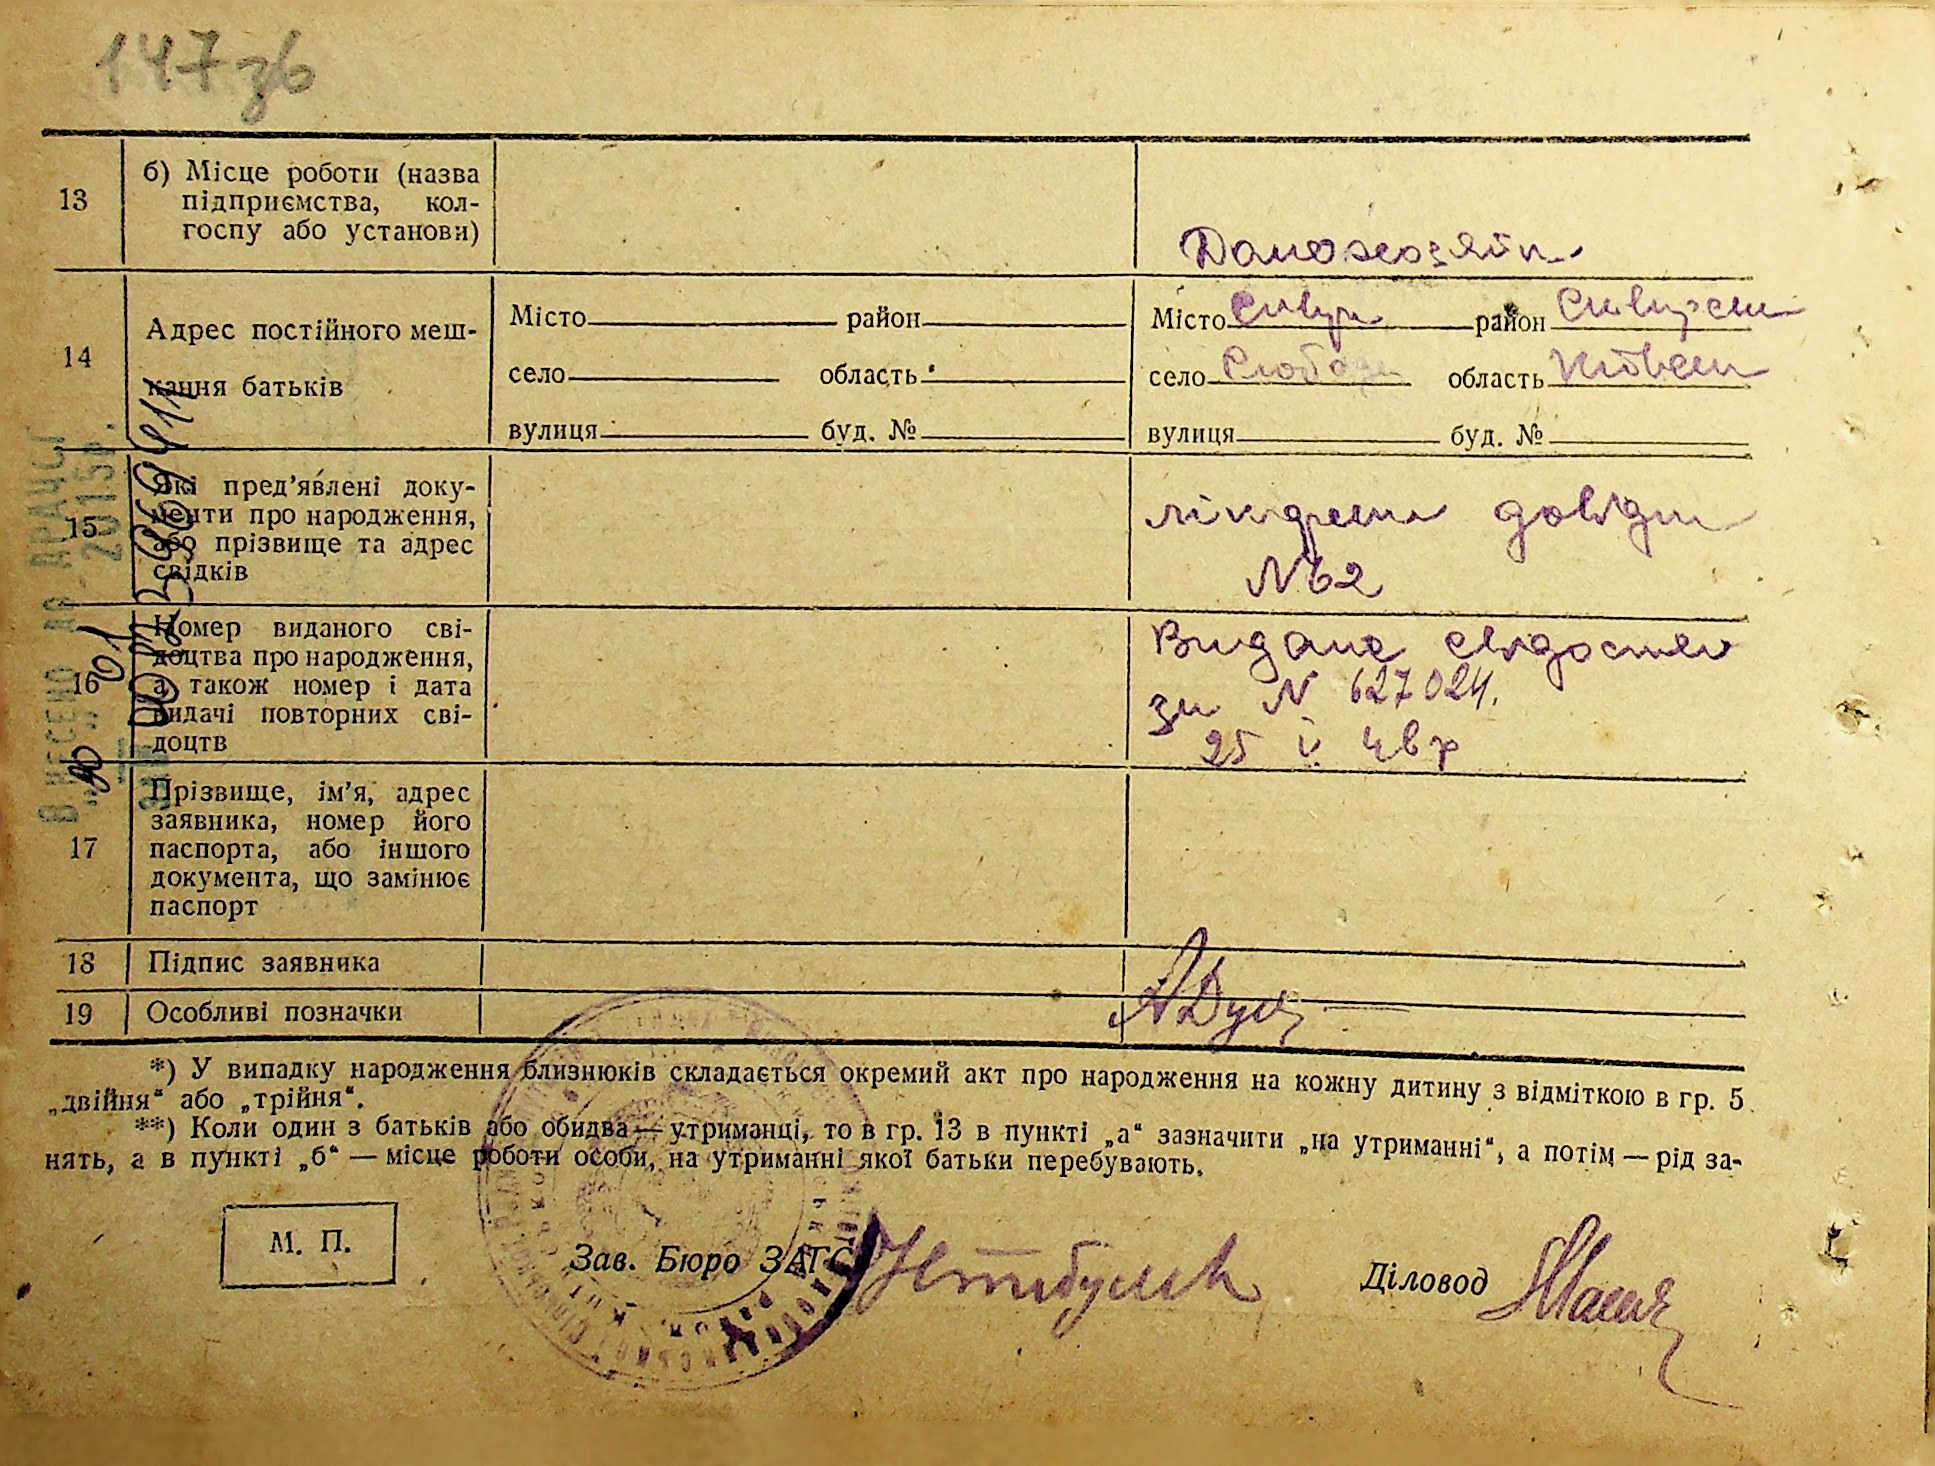 147 зв
13
б) Місце роботи (назва
підприємства, кол-
госпу або установи)
Домохозяйн.
14
Адрес постійного меш-
кання батьків
Місто район
село область
вулиця буд. №
Місто район
село Слобода область
вулиця буд. №
15
Які пред’явлені доку-
менти про народження,
або прізвище та адрес
свідків
№ 2
16
Номер виданого сві-
доцтва про народження,
а також номер і дата
видачі повторних сві-
доцтв
Видане
за N 627024.
25 V. 4
17
Прізвище, ім’я, адрес
заявника, номер його
паспорта, або іншого
документа, що замінює
паспорт
18
Підпис заявника
19
Особливі позначки
*) У випадку народження близнюків складається окремий акт про народження на кожну дитину з відміткою в гр. 5
„двійня“ або „трійня“.
**) Коли один з батьків або обидва — утриманці, то в гр. 13 в пункті „а“ зазначити „на утриманні“, а потім — рід за-
нять, а в пункті „б“ — місце роботи особи, на утриманні якої батьки перебувають.
М. П.
Зав. Бюро ЗАГС
Діловод
ВНЕСЕНО ДО ДРАЦСГ
2015р.